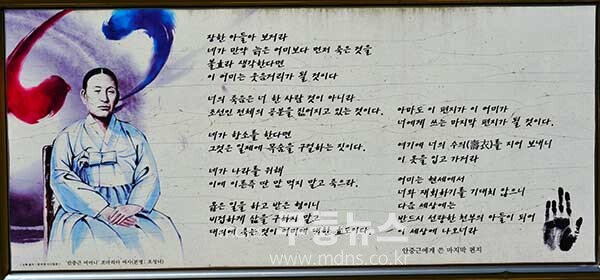 장한 아들아 보거라
네가 만약 늙은 어미보다 먼저 죽은 것을
불효라 생각한다면
이 어미는 웃음거리가 될 것이다
너의 죽음은 너 한 사람 것이 아니라
조선인 전체의 공분을 짊어지고 있는 것이다.
네가 항소를 한다면
그것은 일제에 목숨을 구걸하는 짓이다.
네가 나라를 위해
이에 이른즉 딴 맘 먹지 말고 죽으라.
옳은 일을 하고 받은 형이니
비겁하게 삶을 구하지 말고
대의에 죽는 것이 어미에 대한 효도이다.
아마도 이 편지가 이 어미가
너에게 쓰는 마지막 편지가 될 것이다.
여기에 너의 수의(壽衣)를 지어 보내니
이 옷을 입고 가거라
어미는 현세에서
너와 재회하기를 기대치 않으니
다음 세상에는
반드시 선량한 천부의 아들이 되어
이 세상에 나오너라
안중근에게 쓴 마지막 편지
'안중근 어머니' 조마리아 여사(본명: 조성녀)
무등뉴스
www.mdns.co.kr